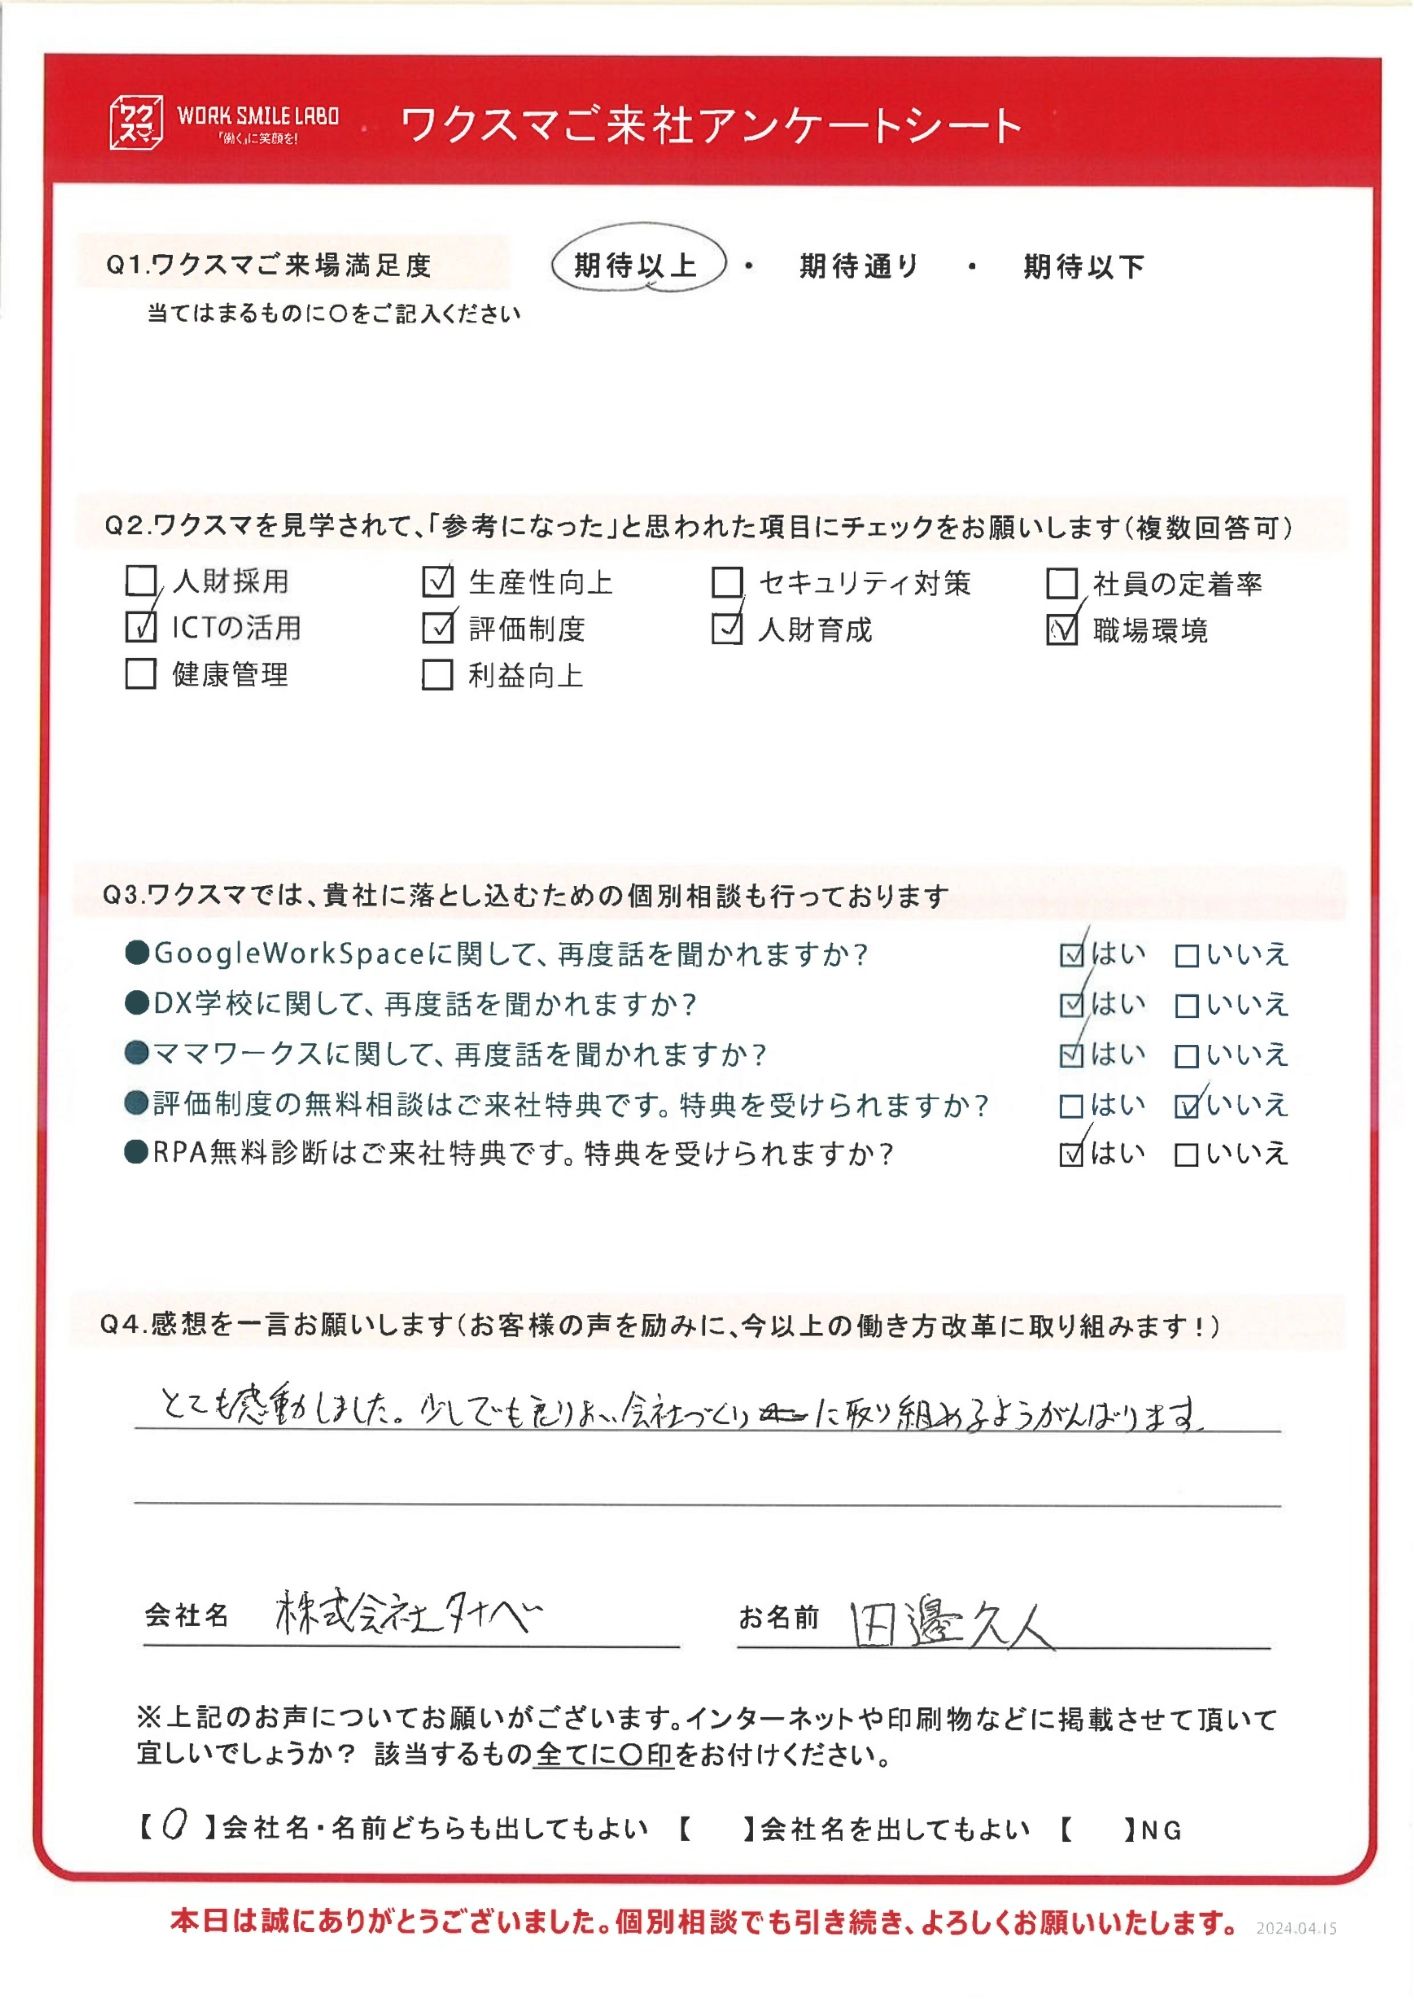 ワクスマ WORK SMILE LABO 「働く」に笑顔を! ワクスマご来社アンケートシート
Q1.ワクスマご来場満足度 期待以上 ・ 期待通り ・ 期待以下
当てはまるものに〇をご記入ください
Q2.ワクスマを見学されて、「参考になった」と思われた項目にチェックをお願いします(複数回答可)
□ 人財採用 ☑ 生産性向上 □ セキュリティ対策 □ 社員の定着率
☑ ICTの活用 ☑ 評価制度 ☑ 人財育成 ☑ 職場環境
□ 健康管理 □ 利益向上
Q3.ワクスマでは、貴社に落とし込むための個別相談も行っております
●GoogleWorkSpaceに関して、再度話を聞かれますか? ☑はい □いいえ
●DX学校に関して、再度話を聞かれますか? ☑はい □いいえ
●ママワークスに関して、再度話を聞かれますか? ☑はい □いいえ
●評価制度の無料相談はご来社特典です。特典を受けられますか? □はい ☑いいえ
●RPA無料診断はご来社特典です。特典を受けられますか? ☑はい □いいえ
Q4.感想を一言お願いします(お客様の声を励みに、今以上の働き方改革に取り組みます!)
とても感動しました。少しでも よい会社づくり に取り組めるようがんばります。
会社名 株式会社タナベ お名前 田邊久人
※上記のお声についてお願いがございます。インターネットや印刷物などに掲載させて頂いて
宜しいでしょうか? 該当するもの全てに〇印をお付けください。
【 〇 】会社名・名前どちらも出してもよい 【 】会社名を出してもよい 【 】NG
本日は誠にありがとうございました。個別相談でも引き続き、よろしくお願いいたします。 2024.04.15